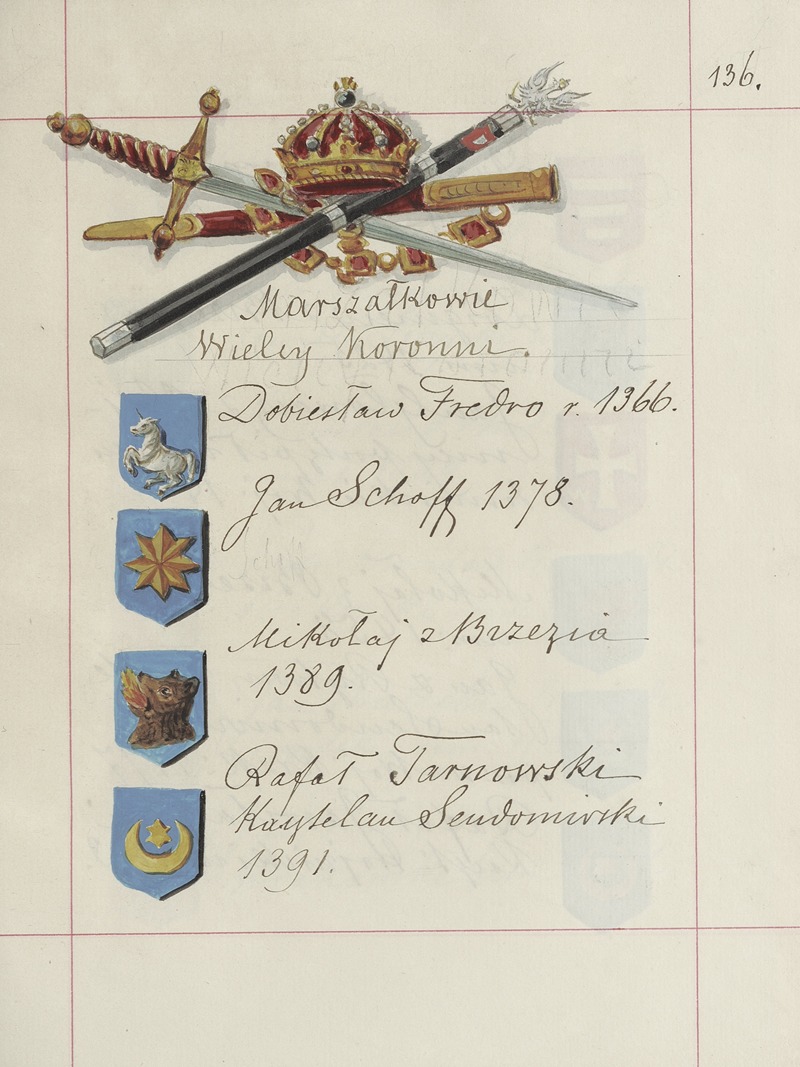 136.
Marszałkowie
Wielcy Koronni.
Dobiesław Fredro r. 1366.
Jan Schoff 1378.
Mikołaj z Brzezia
1389.
Rafał Tarnowski
Kasztelan Sendomirski
1391.